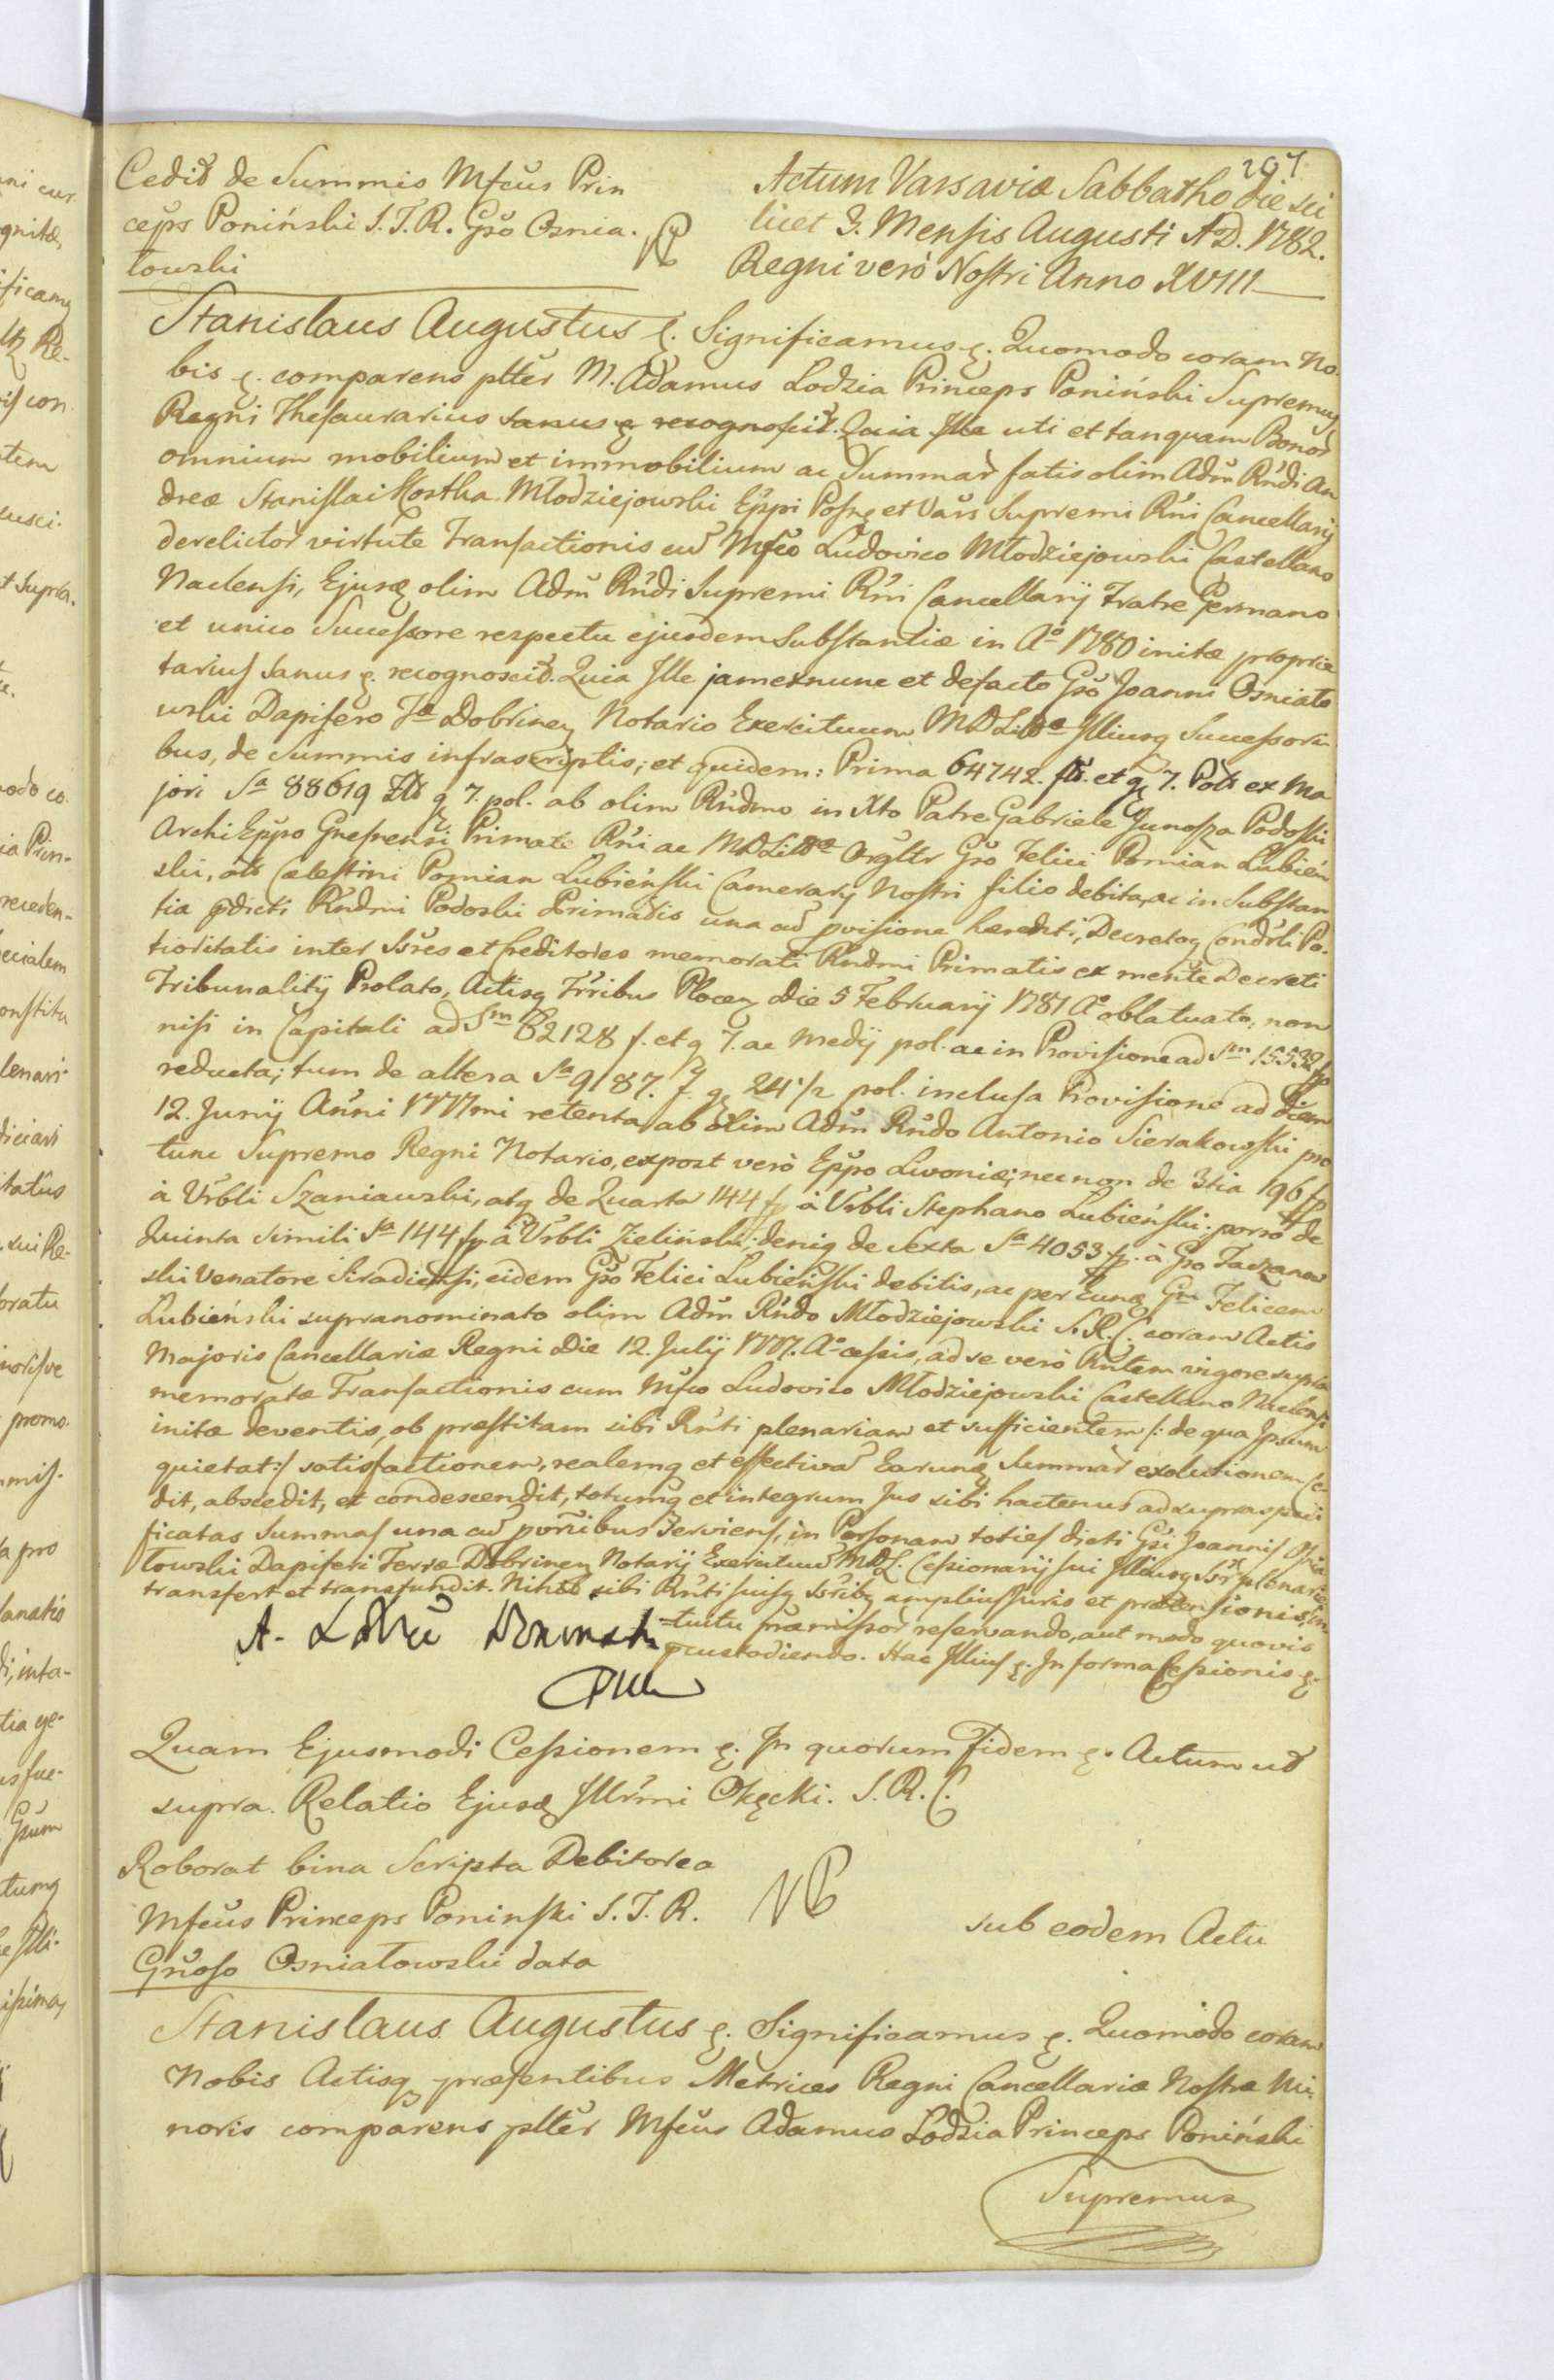 207
Cedit de Summis Mfcus Prin
ceps Poniński S. T. R. Gso Osnia.
towski
Actum Varsaviæ Sabbatho die sci
licet 3. Mensis Augusti A.D. 1782.
Regni verò Nostri Anno XVIII
Stanislaus Augustus &. Significamus &. Quomodo coram No.
bis &. comparens plter M. Adamus Lodzia Princeps Poniński Supremus
Regni Thesaurarius sanus & recognoscit. Quia Ille uti et tanquam Bonor
omnium mobilium et immobilium ac Summar fatis olim Adm Rndi An
dreæ Stanislai Kostka Młodziejowski Eppi Posn& et Vars Supremi Rni Cancellarij
derelictor virtute Transactionis cum Mfco Ludovico Młodziejowski Castellano
Naclensi, Ejusq olim Adm Rndi Supremi Rni Cancellarij Fratre Germano
et unico Successore respectu ejusdem Substantiæ in Ao 1780 initæ proprie
tarius sanus &. recognoscit. Quia Ille jam exnunc et defacto Gso Joanni Osniato
wski Dapifero Tæ Dobrinen Notario Exercituum M D Litt Illiusq Successori
bus, de Summis infrascriptis; et quidem: Prima 64742. fl. et g 7. Pol ex Ma
jori Sa 88619 Zł g 7. pol. ab olim Rndmo in Xto Patre Gabriele Junosza Podoski
Archi Eppo Gnesnensi Primate Rni ac M D Litt Orgltr Gso Felici Pomian Lubień
ski, ol Cælestini Pomian Lubieński Camerarij Nostri filio debita, ac in Substan
tia pdicti Rndmi Podoski Primatis una cum pvisione hærenti, Decretoq Condsli Po.
tioritatis inter Ssres et Creditores memorati Rndmi Primatis ex mente Decreti
Tribunalitij Prolato, Actisq Trribus Plocen Die 5 Februarij 1781 Ao oblatuato, non
nisi in Capitali ad Sm 62128 f. et g 7. ac Medij pol. ac in Provisione ad Sm 15532 fp
reducta; tum de altera Sa 9187. f. g 24 1/2 pol. inclusa Provisione ad diem
12. Junij Anni 1777mi retenta ab olim Adm Rndo Antonio Sierakowski pro
tunc Supremo Regni Notario, expost verò Eppo Livoniæ; nec non de 3tia 196 fp
à Vrbli Szaniawski, atq de Quarta 144 fp à Vrbli Stephano Lubieński: porro de
Quinta simili Sa 144 fp à Vrbli Zieliński; deniq de Sexta Sa 4053 fp. à Gso Taczanow
ski Venatore Siradiensi, eidem Gso Felici Lubieński debitis, ac per Eunq Gm Felicem
Lubieński supranominato olim Adm Rndo Młodziejowski S. R. C. coram Actis
Majoris Cancellariæ Regni Die 12. Julij 1777. Ao cessis, ad se verò Rntem vigore supra
memoratæ Transactionis cum Mfco Ludovico Młodziejowski Castellano Naclensi
initæ deventis, ob præstitam sibi Rnti plenariam et sufficientem /: de qua Ipsum
quietat :/ satisfactionem, realemq et effectivam Earunq Summar exolutionem Ce
dit, abscedit, et condescendit, totumq et integrum Jus sibi hactenus ad supraspeci
ficatas Summas una cum pvnibus serviens, in Personam toties dicti Gsi Joannis Osnia
towski Dapiferi Terræ Dobrinen Notarij Exercituum M D L. Cessionarij sui Illiusq Ssr plenarie
transfert et transfundit. Nihil sibi Rnti suisq Ssribq amplius Juris et prætensionis, in
tuitu præmissor reservando, aut modo quovis
pcustodiendo. Hac Illius &. In forma Cessionis &.
A. Lodzia Poninski
Quam Ejusmodi Cessionem &. In quorum Fidem &. Actum ut
supra. Relatio Ejusq Illrmi Okęcki. S. R. C.
Roborat bina Scripta Debitorea
Mfcus Princeps Poninski S. T. R.
Gnoso Osniatowski data
sub eodem Actu
Stanislaus Augustus &. Significamus &. Quomodo coram
Nobis Actisq præsentibus Metrices Regni Cancellariæ Nostræ Mi:
noris comparens plter Mfcus Adamus Lodzia Princeps Poniński
Supremus